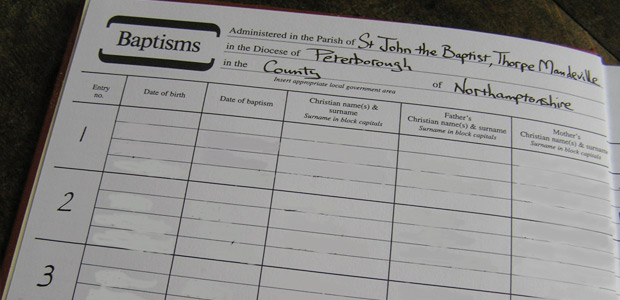 Baptisms
Administered in the Parish of St John the Baptist, Thorpe Mandeville
in the Diocese of Peterborough
in the County of Northamptonshire
Insert appropriate local government area
Entry
no.
Date of birth
Date of baptism
Christian name(s) &
surname
Surname in block capitals
Father's
Christian name(s) & surname
Surname in block capitals
Mother's
Christian name(s) & surname
Surname in block capitals
1
2
3